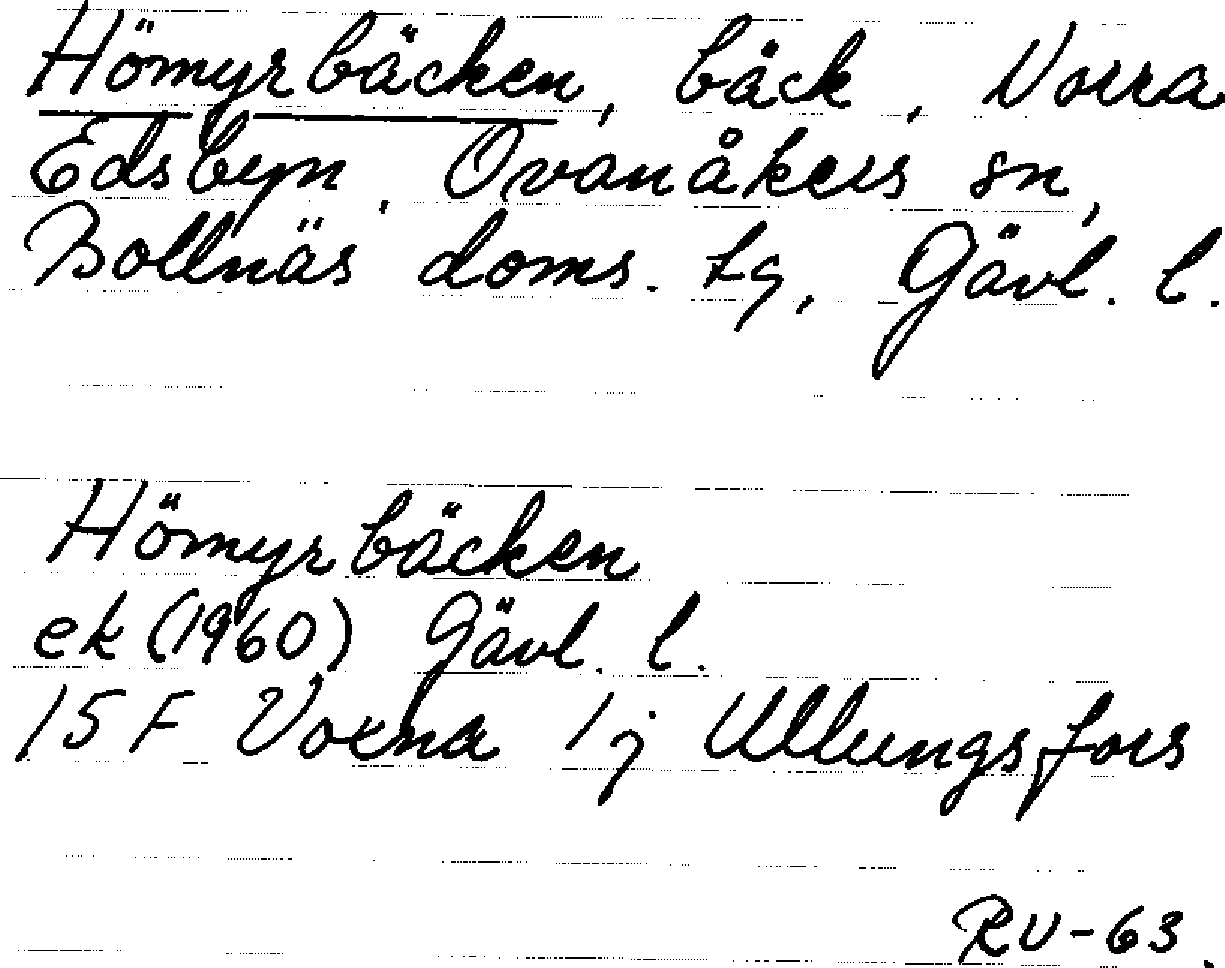 Hömyrbäcken, bäck, Norra
Edsbyn, Ovanåkers sn,
Bollnäs doms. tg, Gävl. l.
Hömyrbäcken
ek (1960) Gävl. l.
15 F Voxna 1j Ullungsfors
RU-63.